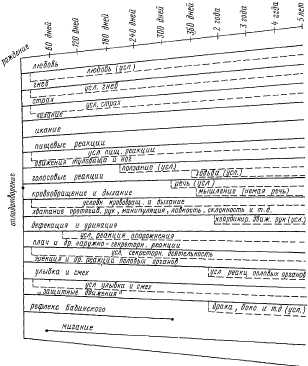 рождение
60 дней
120 дней
180 дней
240 дней
300 дней
300 дней
2 года
3 года
4 года
5 лет
оплодотворение
любовь
любовь (усл.)
гнев
усл. гнев
страх
усл. страх
чихание
икание
пищевые реакции
усл. пищ. реакции
движения туловища и ног
ползание (усл.)
ходьба (усл.)
голосовые реакции
речь (усл.)
мышление (немая речь)
кровообращение и дыхание
условн. кровообращ. и дыхание
хватание, протягив. рук, манипуляция, ловкость, склонность и т.д.
координир. движ. рук (усл.)
дефекация и уринация
усл. реакция опорожнения
плач и др. наружно-секреторн. реакции
усл. секреторн. деятельность
эрекция и др. реакции половых органов
усл. реакц. половых органов
улыбка и смех
усл. улыбка и смех
"защитные движения"
драка, бокс и т.д. (усл.)
рефлекс Бабинского
мигание